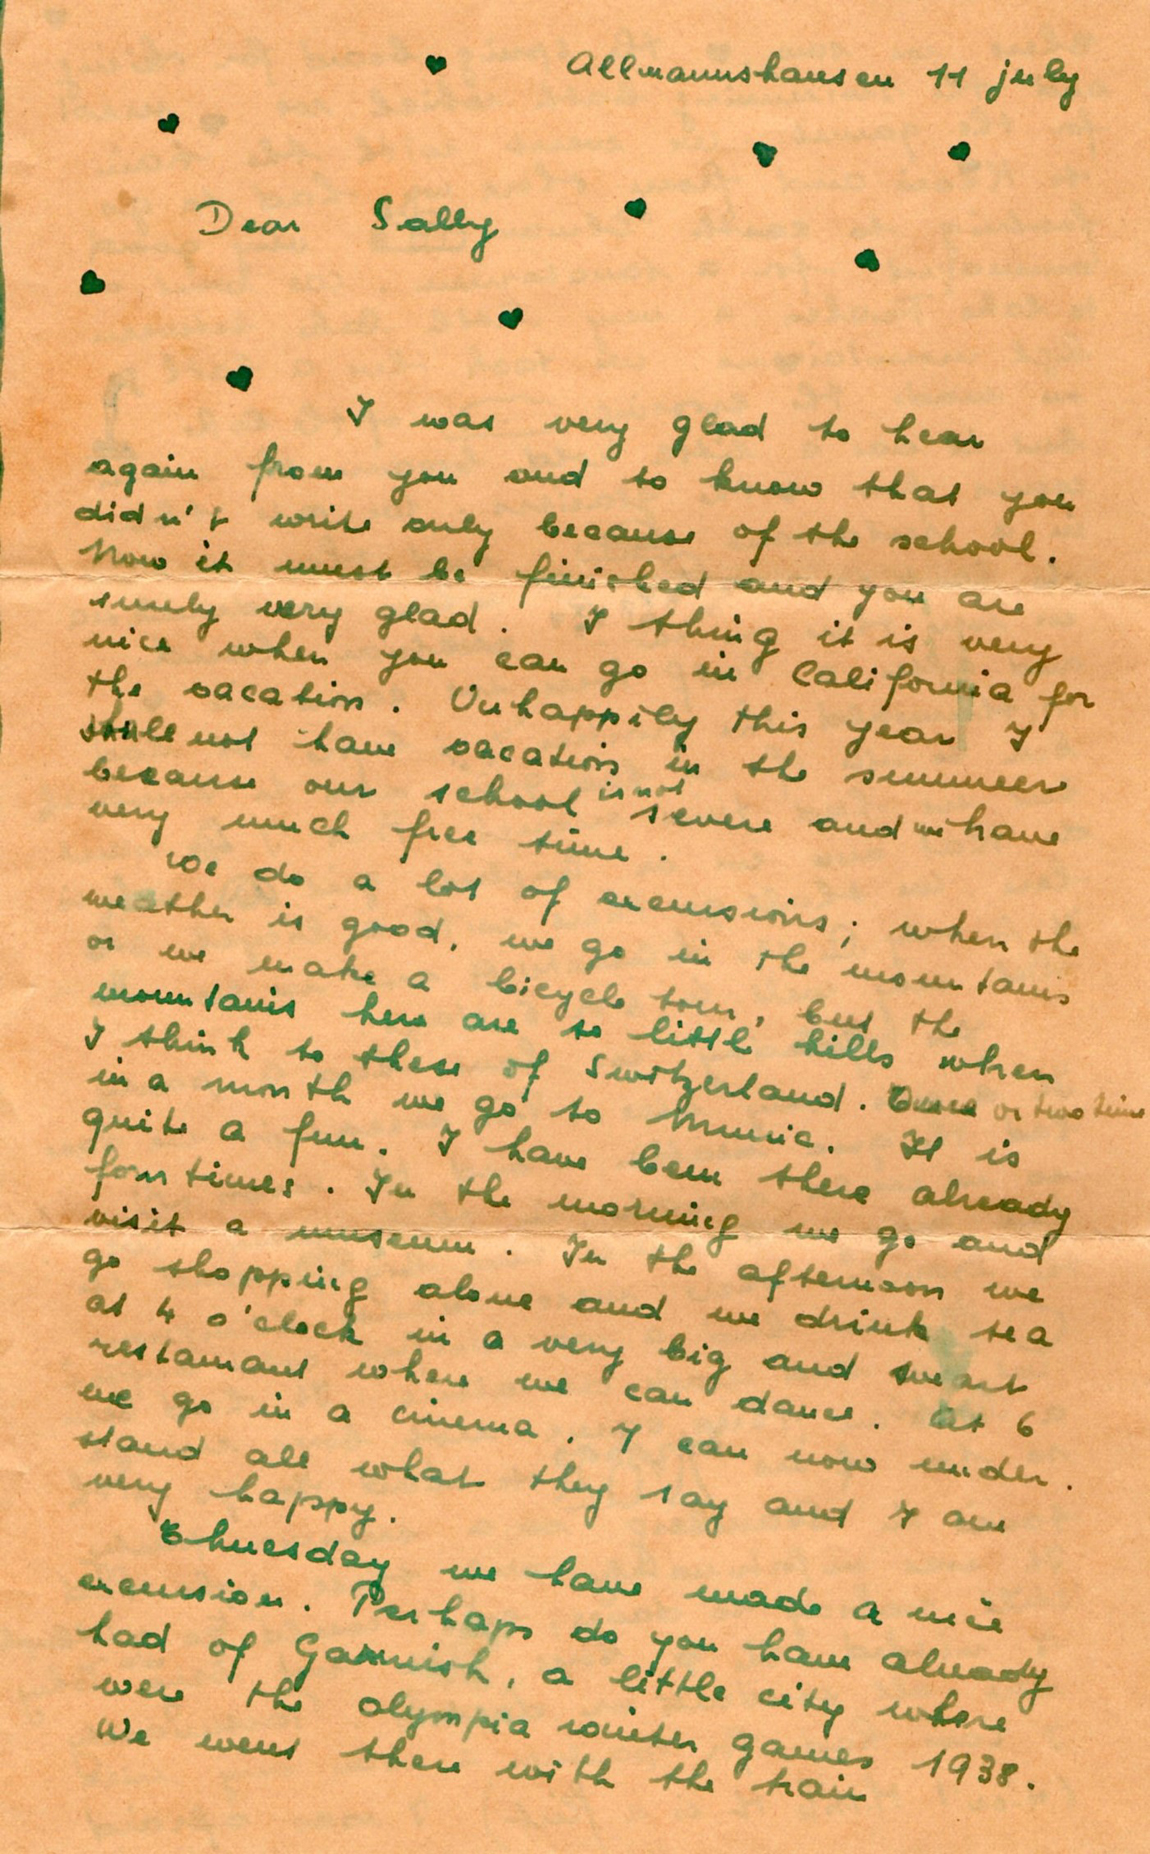 Allmannshausen 11 july
Dear Sally
I was very glad to hear
again from you and to know that you
didn't write only because of the school.
Now it must be finished and you are
surely very glad. I thing it is very
nice when you can go in California for
the vacation. Unhappily this year I
shall not have vacation in the summer
because our school is not severe and we have
very much free time.
We do a lot of excursions; when the
weather is good, we go in the mountains
or we make a bicycle tour, but the
mountains here are so little hills when
I think to these of Switzerland. Once or two time
in a month we go to Munic. It is
quite a fun. I have been there already
four times. In the morning we go and
visit a museum. In the afternoon we
go shopping alone and we drink tea
at 4 o'clock in a very big and smart
restaurant where we can dance. At 6
we go in a cinema. I can now under.
stand all what they say and I am
very happy.
Thuesday we have made a nice
excursion. Perhaps do you have already
had of Garmish, a little city where
were the olympia winter games 1938.
We went there with the train